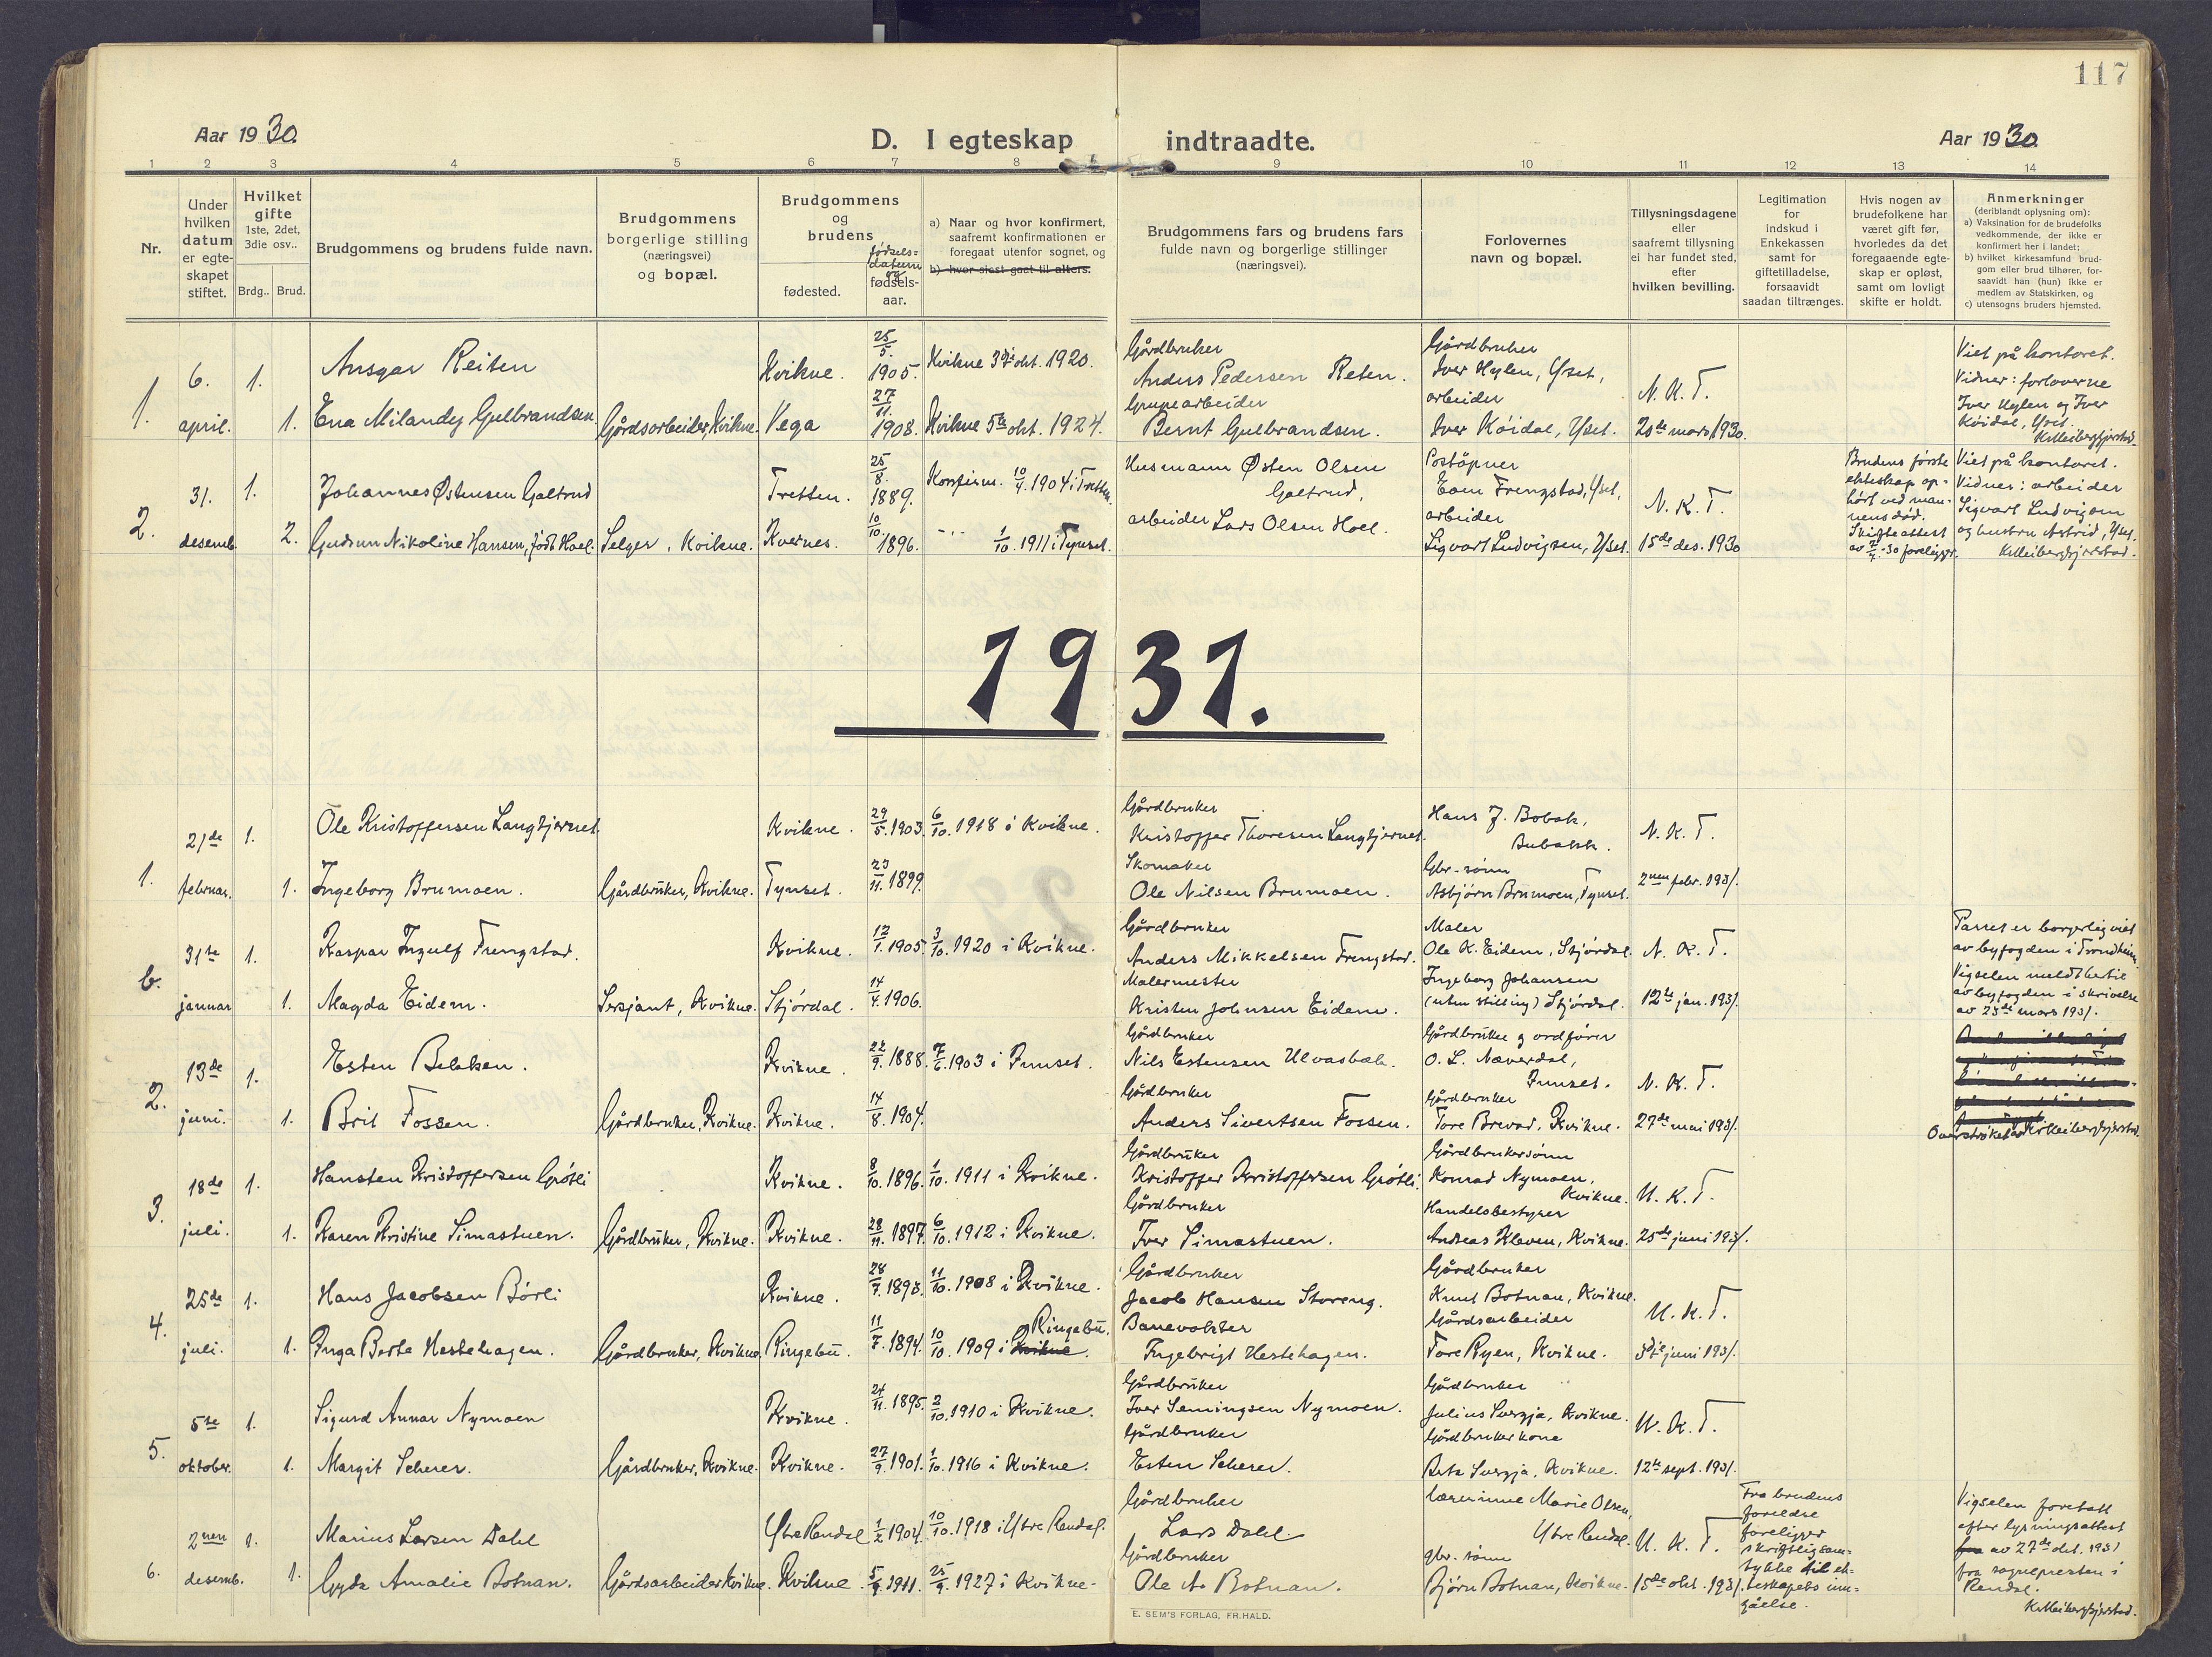 117
Aar 1930.
D. I egteskap indtraadte.
Aar 1930.
1 2 3 4 5 6 7 8 9 10 11 12 13 14
Nr.
Under
hvilken
datum
er egte-
skapet
stiftet.
Hvilket
gifte
1ste, 2det,
3die osv..
Brdg.. Brud.
Brudgommens og brudens fulde navn.
Brudgommens
borgerlige stilling
(næringsvei)
og bopæl.
Brudgommens
og
brudens
fødested.
fødsels-
datum
og
fødsels-
aar.
a) Naar og hvor konfirmert,
saafremt konfirmationen er
foregaat utenfor sognet, og
b) hvor sidst gaat til alters.
Brudgommens fars og brudens fars
fulde navn og borgerlige stillinger
(næringsvei).
Forlovernes
navn og bopæl.
Tillysningsdagene
eller
saafremt tillysning
ei har fundet sted,
efter
hvilken bevilling.
Legitimation
for
indskud i
Enkekassen
samt for
giftetilladelse,
forsaavidt
saadan tiltrænges.
Hvis nogen av
brudefolkene har
været gift før,
hvorledes da det
foregaaende egte-
skap er opløst,
samt om lovligt
skifte er holdt.
Anmerkninger
(deriblandt oplysning om):
a) Vaksination for de brudefolks
vedkommende, der ikke er
konfirmert her i landet;
b) hvilket kirkesamfund brud-
gom eller brud tilhører, for-
saavidt han (hun) ikke er
medlem av Statskirken, og
c) utensogns bruders hjemsted.
1.
6.
april.
1.
Ansgar Reiten
Kvikne.
25/5.
1905.
Kvikne 3dje okt. 1920.
Gårdbruker
Anders Pedersen Reten.
Gårdbruker
Iver Hylen, Yset,
arbeider
Iver Køidal, Yset.
N. K. T.
20de mars 1930.
1.
Ena Milandy Gulbrandsen
Gårdsarbeider, Kvikne.
Vega
27/11.
1908.
Kvikne 5te okt. 1924.
Grupearbeider
Bernt Gulbrandsen.
Viet på kontoret.
Vidner: forloverne
Iver Hylen og Iver
Køidal, Yset.
2.
31.
desemb.
1.
Johannes Østensen Galtrud
Tretten.
25/8.
1889.
Konfirm. 10/4. 1904 i Tretten.
Husmann Østen Olsen
Galtrud,
Poståpner
Even Frengstad, Yset,
arbeider
Sigvart Ludvigsen, Yset.
N. K. T.
15de des. 1930
2.
Gudrun Nikoline Hansen, født Hoel.
Selger, Kvikne.
Kvernes.
10/10.
1896.
1/10. 1911 i Tynset.
arbeider Lars Olsen Hoel.
Brudens første
ekteskap op-
hørt ved man-
nens død.
Skifteattest
av 7/4-30 foreligger.
Viet på kontoret.
Vidner: arbeider
Sigvart Ludvigsen
og hustru Astrid, Yset.
1931.
1.
21de
februar.
1.
Ole Kristoffersen Langtjernet.
Kvikne.
29/5. 1903.
6/10. 1918 i Kvikne.
Gårdbruker
Kristoffer Thoresen Langtjernet.
Hans J. Bobak,
Bubakk.
N. K. T.
1.
Ingeborg Brumoen.
Gårdbruker, Kvikne.
Tynset.
23/11. 1899.
Skomaker
Ole Nilsen Brumoen.
Gbr.-sønn
Asbjørn Brumoen, Tynset.
2nen febr. 1931.
b.
31te
januar
1.
Kaspar Ingulf Frengstad.
Kvikne.
12/1. 1905.
3/10. 1920 i Kvikne.
Gårdbruker
Anders Mikkelsen Frengstad.
Maler
Ole K. Eidem, Stjørdal.
N. K. T.
1.
Magda Eidem.
Sersjant, Kvikne.
Stjørdal.
14/4. 1906.
Malermester
Kristen Johnsen Eidem.
Ingeborg Johansen
(uten stilling) Stjørdal.
12te jan. 1931.
Parret er borgerlig viet
av byfogden i Trondheim.
Vigselen meldt hertil
av byfogden i skrivelse
av 23de mars 1931.
2.
13de
juni.
1.
Esten Bekken.
Kvikne.
22/9. 1888.
7/6. 1903 i Tynset.
Gårdbruker
Nils Estensen Ulvasbak.
Gårdbruker og ordfører
O. L. Næverdal,
Tynset.
N. K. T.
1.
Brit Fossen.
Gårdbruker, Kvikne.
Kvikne.
14/8. 1904.
Gårdbruker
Anders Sivertsen Fossen.
Gårdbruker
Tore Brevad, Kvikne.
27de mai 1931.
3.
18de
juli.
1.
Hansten Kristoffersen Grøtli
Kvikne.
8/10. 1896.
1/10. 1911 i Kvikne.
Gårdbruker
Kristoffer Kristoffersen Grøtli.
Gårdbrukersønn
Konrad Nymoen,
Kvikne.
N. K. T.
1.
Karen Kristine Simastuen.
Gårdbruker, Kvikne.
Kvikne.
28/11. 1897.
6/10. 1912 i Kvikne.
Gårdbruker
Iver Simastuen.
Handelsbestyrer
Andreas Kleven, Kvikne.
25de juni 1931.
4.
25de
juli.
1.
Hans Jacobsen Børli
Kvikne.
28/7. 1893.
11/10. 1908 i Kvikne.
Gårdbruker
Jacob Hansen Storeng.
Gårdbruker
Knut Botnan, Kvikne.
N. K. T.
1.
Inga Berte Hestehagen.
Gårdbruker, Kvikne.
Ringebu.
11/7. 1894.
10/10. 1909 i Kvikne. Ringebu.
Banevokter
Ingebrigt Hestehagen.
Gårdsarbeider
Tore Ryen, Kvikne.
3dje juni 1931.
5.
5te
oktober.
1.
Sigurd Annar Nymoen
Kvikne.
24/11. 1895.
2/10. 1910 i Kvikne.
Gårdbruker
Iver Semingsen Nymoen.
Gårdbruker
Julius Svergja, Kvikne.
N. K. T.
1.
Margit Scherer.
Gårdbruker, Kvikne.
Kvikne.
27/9. 1901.
1/10. 1916 i Kvikne.
Gårdbruker
Esten Scherer.
Gårdbrukerkone
Berte Svergja, Kvikne.
12te sept. 1931.
6.
2nen
desemb.
1.
Marius Larsen Dahl
Ytre Rendal
1/2 1904.
10/10. 1918 i Ytre Rendal.
Gårdbruker
Lars Dahl.
lærerinne Marie Olsen,
Ytre Rendal.
N. K. T.
1.
Gyda Amalie Botnan.
Gårdsarbeider Kvikne.
Kvikne.
5/9. 1911.
25/9. 1927 i Kvikne.
Gårdbruker
Ole A. Botnan.
gbr. sønn
Bjørn Botnan, Kvikne.
15de okt. 1931.
Fra brudens
foreldre
foreligger
skriftlig sam-
tykke til ek-
teskapets inn-
gåelse.
Vigselen foretatt
efter lysningsattest
fra av 27de okt. 1931
fra sognepresten i
Rendal.
E. SEM'S FORLAG, FR.HALD.